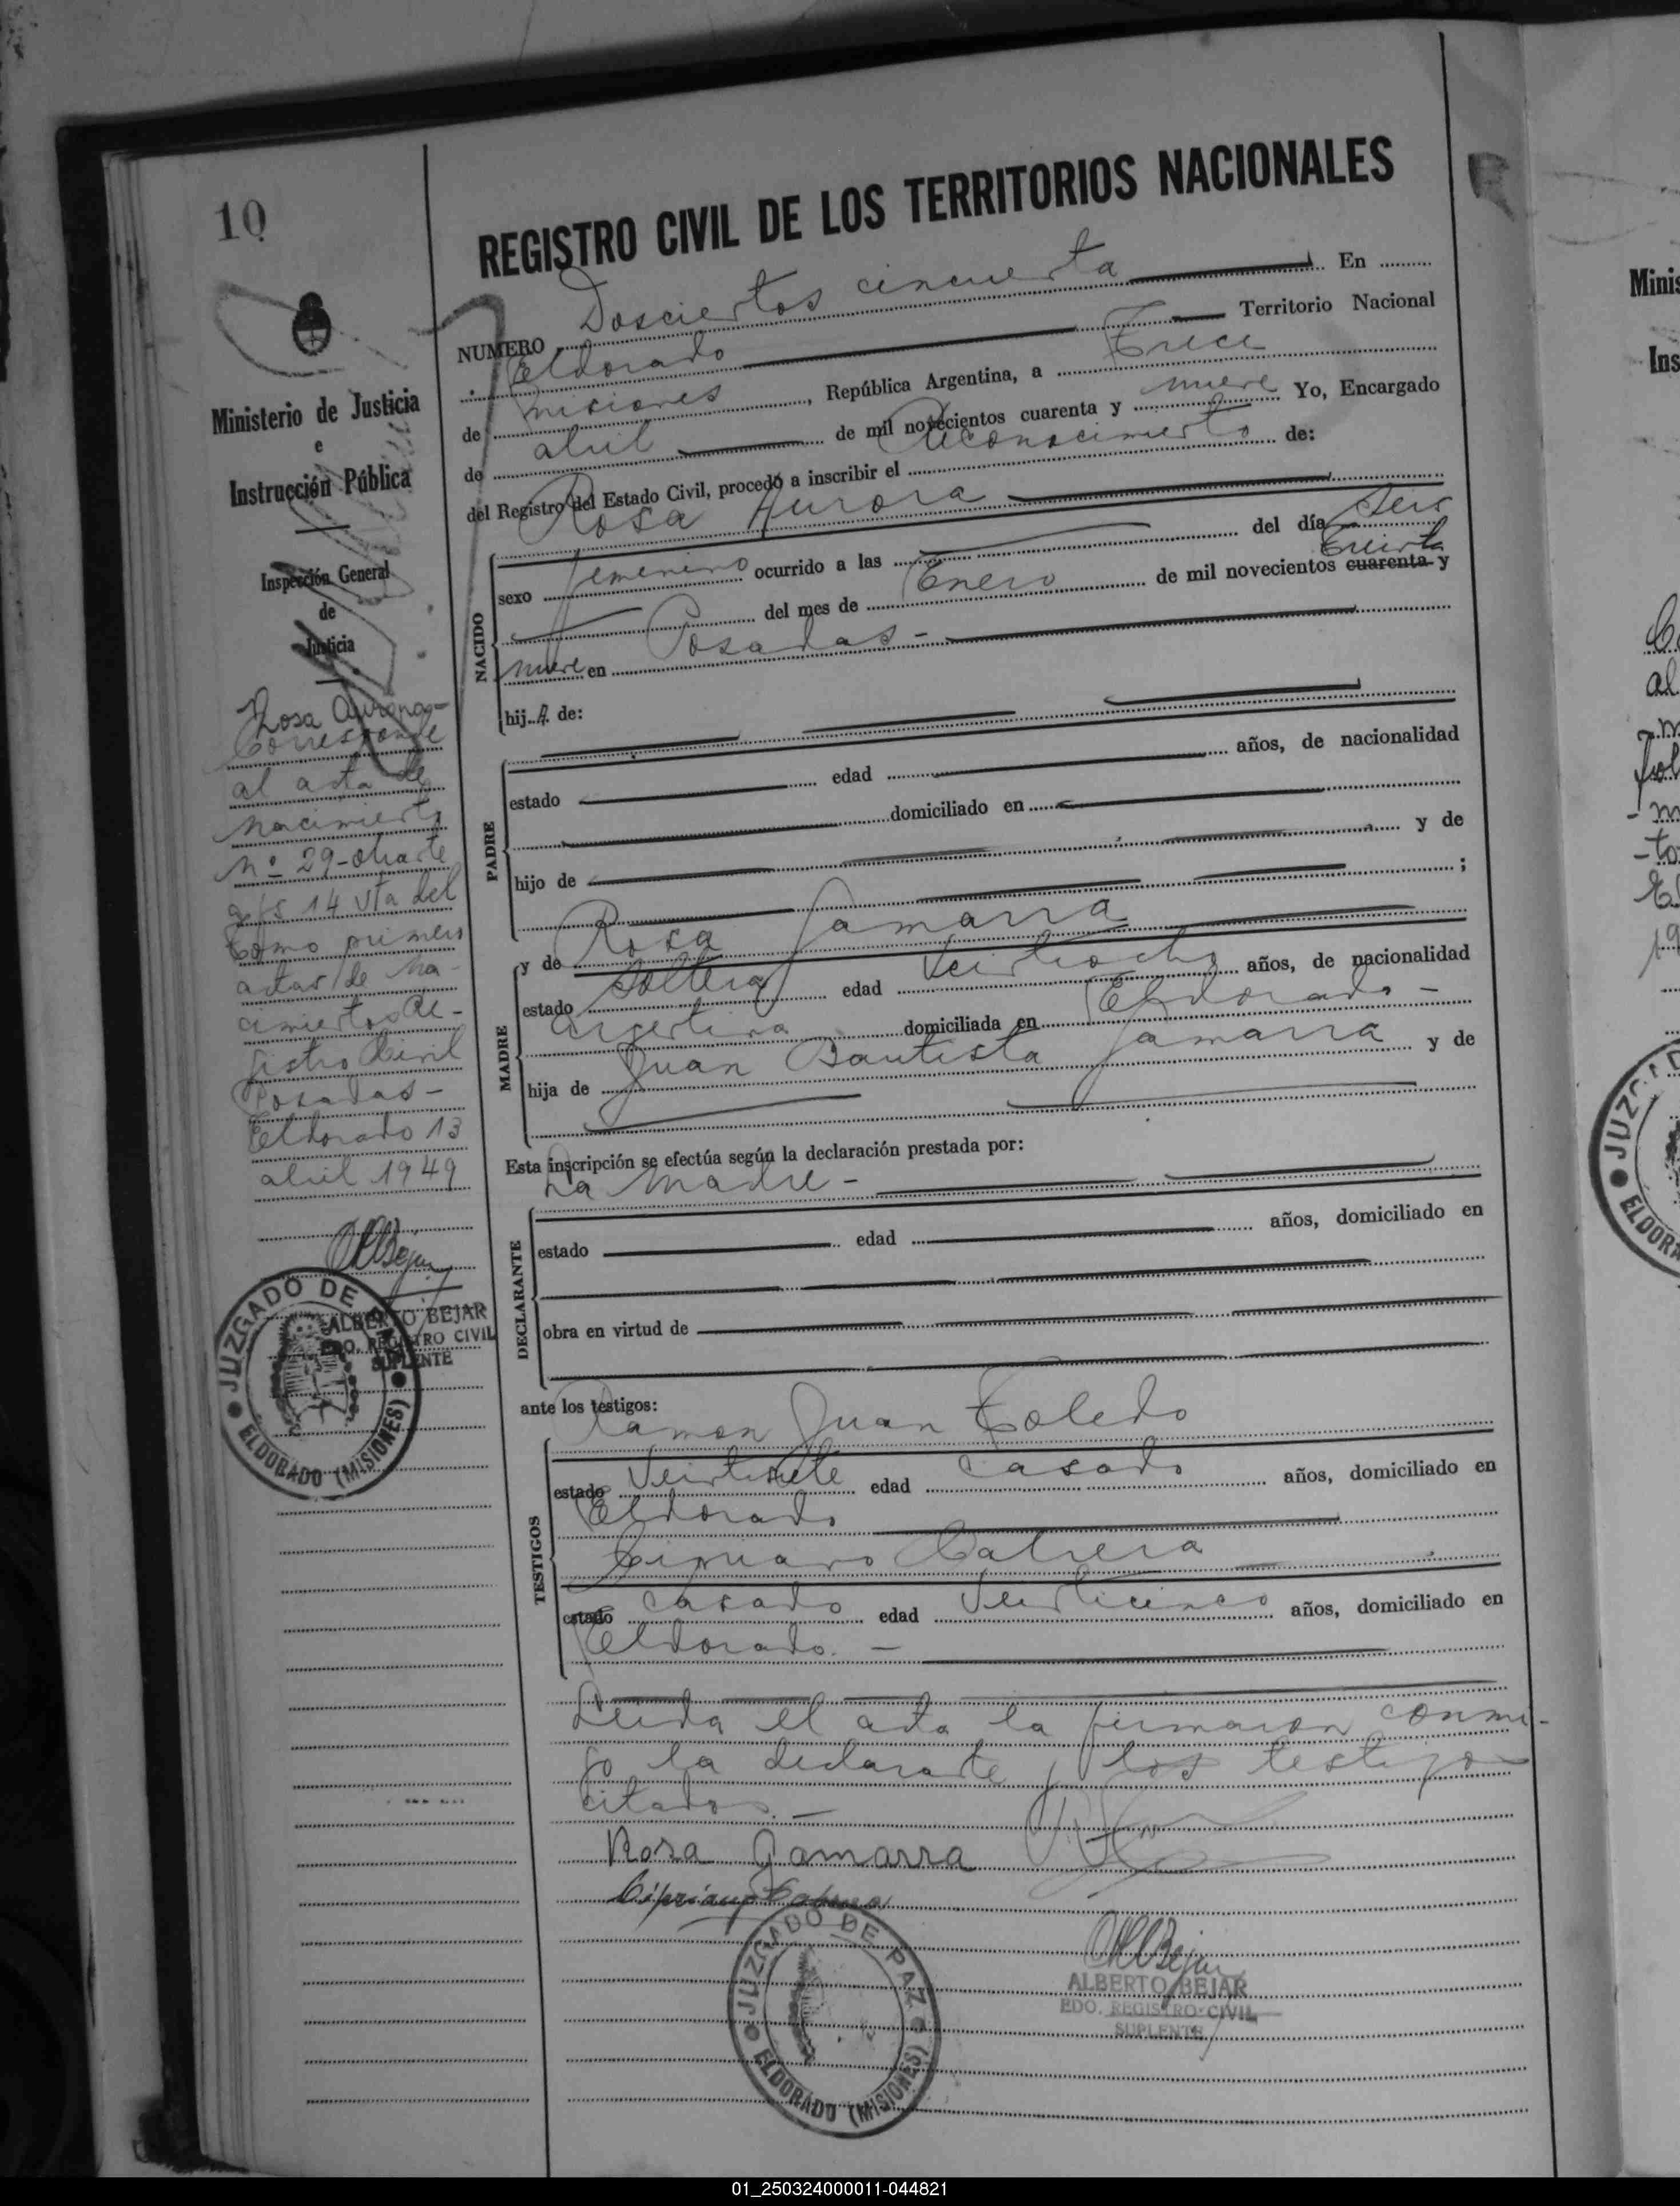 10
REGISTRO CIVIL DE LOS TERRITORIOS NACIONALES
NUMERO Doscientos cincuenta En
Eldorado Territorio Nacional
de misiones, República Argentina, a Trece
de abril de mil novecientos cuarenta y nueve Yo, Encargado
del Registro del Estado Civil, procedo a inscribir el Reconocimiento de:
Rosa Aurora
NACIDO
sexo femenino ocurrido a las del día Seis
del mes de Enero de mil novecientos cuarenta y
treinta
nueve en Posadas -
hij A de:
PADRE
estado edad años, de nacionalidad
domiciliado en
hijo de y de
;
y de Rosa Gamarra
MADRE
estado Soltera edad Veintiocho años, de nacionalidad
argentina domiciliada en Eldorado -
hija de Juan Bautista Gamarra y de
Esta inscripción se efectúa según la declaración prestada por:
La madre -
DECLARANTE
estado edad años, domiciliado en
obra en virtud de
ante los testigos:
Ramon Juan Toledo
TESTIGOS
estado Veintisiete edad casado años, domiciliado en
Eldorado
Cipriano Cabrera
estado casado edad Veinticinco años, domiciliado en
Eldorado. -
Leida el acta la firmaron conmi-
go la declarante y los testigos
citados. -
Rosa Gamarra
Cipriano Cabrera
ALBERTO BEJAR
EDO. REGISTRO CIVIL
SUPLENTE
JUZGADO DE PAZ
ELDORADO (MISIONES)
Ministerio de Justicia
e
Instrucción Pública
Inspección General
de
Justicia
Rosa Aurora-
Corresponde
al acta de
Nacimiento
Nº 29 - obrante
a fs 14 vta del
tomo primero
actas de na-
cimientos Re-
gistro Civil
Posadas -
Eldorado 13
abril 1949
ALBERTO BEJAR
EDO. REGISTRO CIVIL
SUPLENTE
JUZGADO DE
ELDORADO (MISIONES)
Minis
Ins
JUZG
ELDORA
01_250324000011-044821